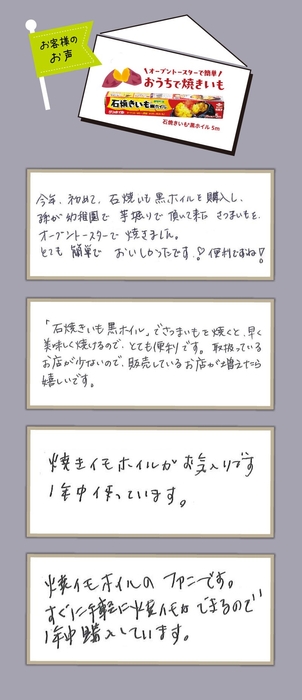 お客様の
お声
オーブントースターで簡単!
おうちで焼きいも
石焼きいも黒ホイル
石焼きいも黒ホイル 5m
今年、初めて、石焼いも黒ホイルを購入し、
孫が幼稚園で芋掘りで頂いて来たさつまいもを、
オーブントースターで焼きました。
とても簡単でおいしかったです♡便利ですね!
「石焼きいも黒ホイル」でさつまいもを焼くと、早く
美味しく焼けるので、とても便利です。取扱っている
お店が少ないので、販売しているお店が増えたら
嬉しいです。
焼きイモホイルがお気入りです
1年中使っています。
焼イモホイルのファンです。
すぐに手軽に焼イモができるので
1年中購入しています。